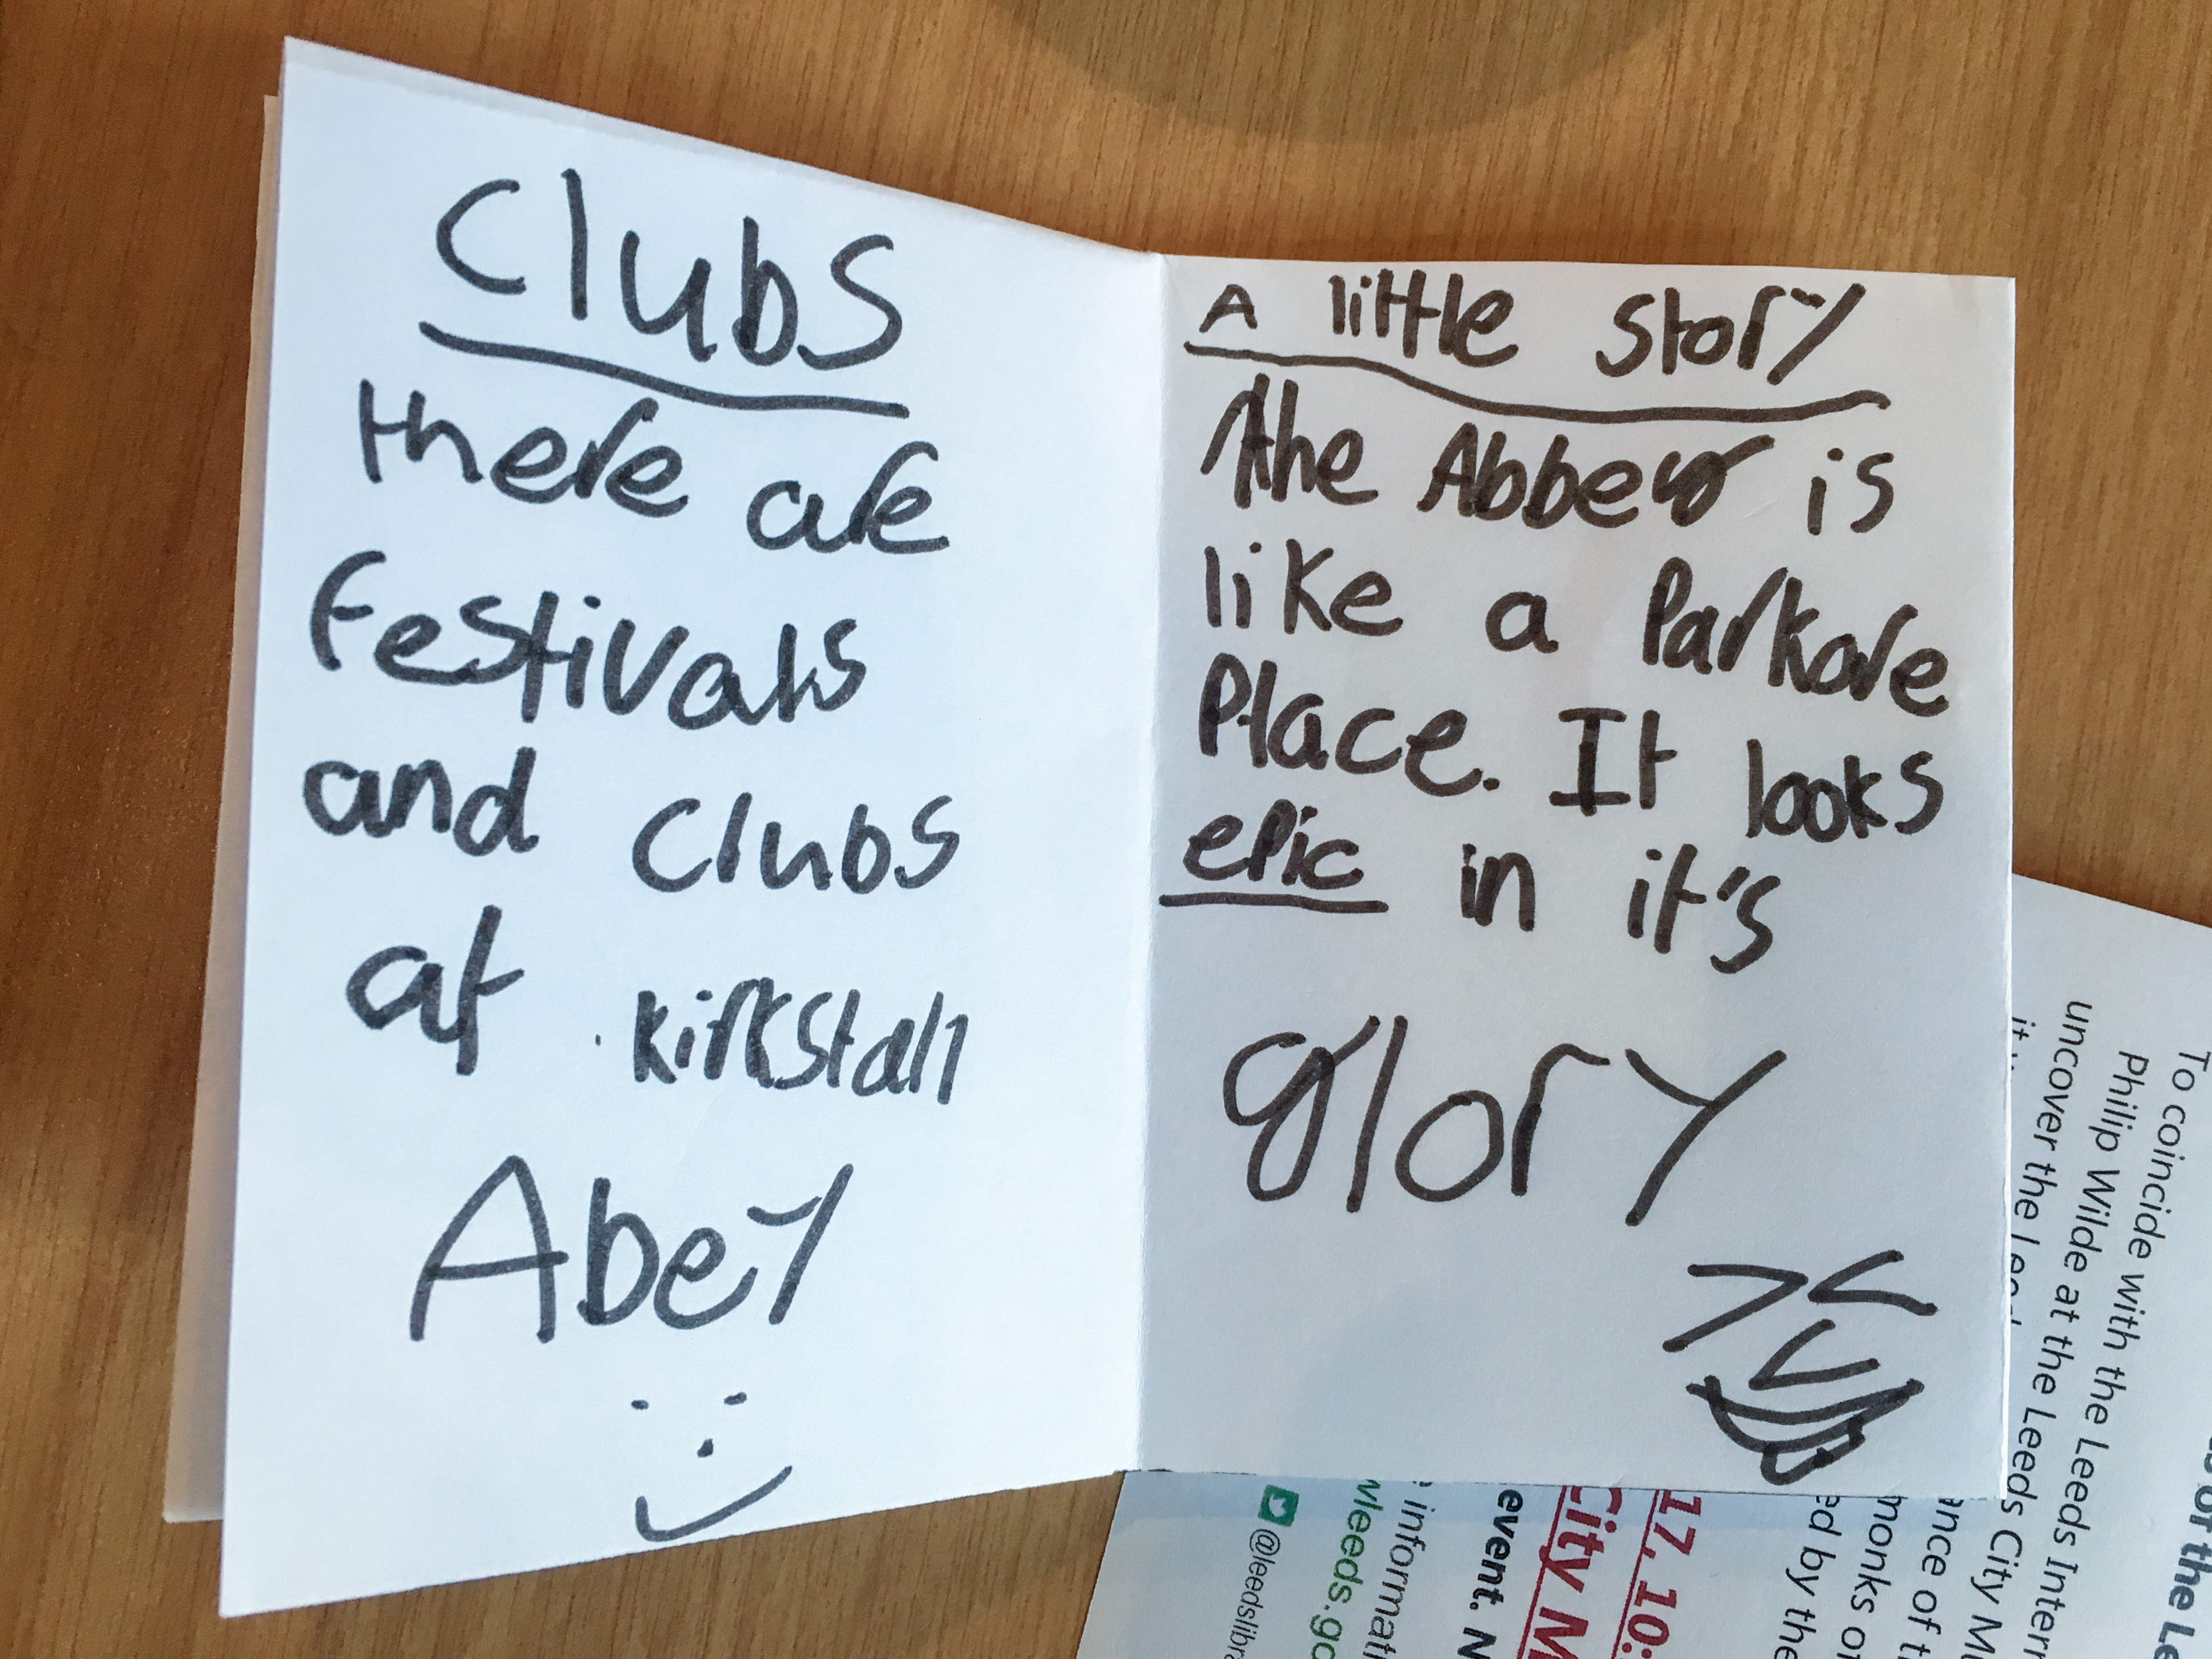 Clubs
there are
festivals
and clubs
at Kirkstall
Abey
A little story
the Abbey is
like a Parkore
Place. It looks
epic in it's
glory
To coincide with the Leeds Intern
Philip Wilde at the Leeds City Mu
uncover the
@leedslibra
wleeds.go
informati
event. N
City M
17, 10:
ed by the
monks of
ance of t